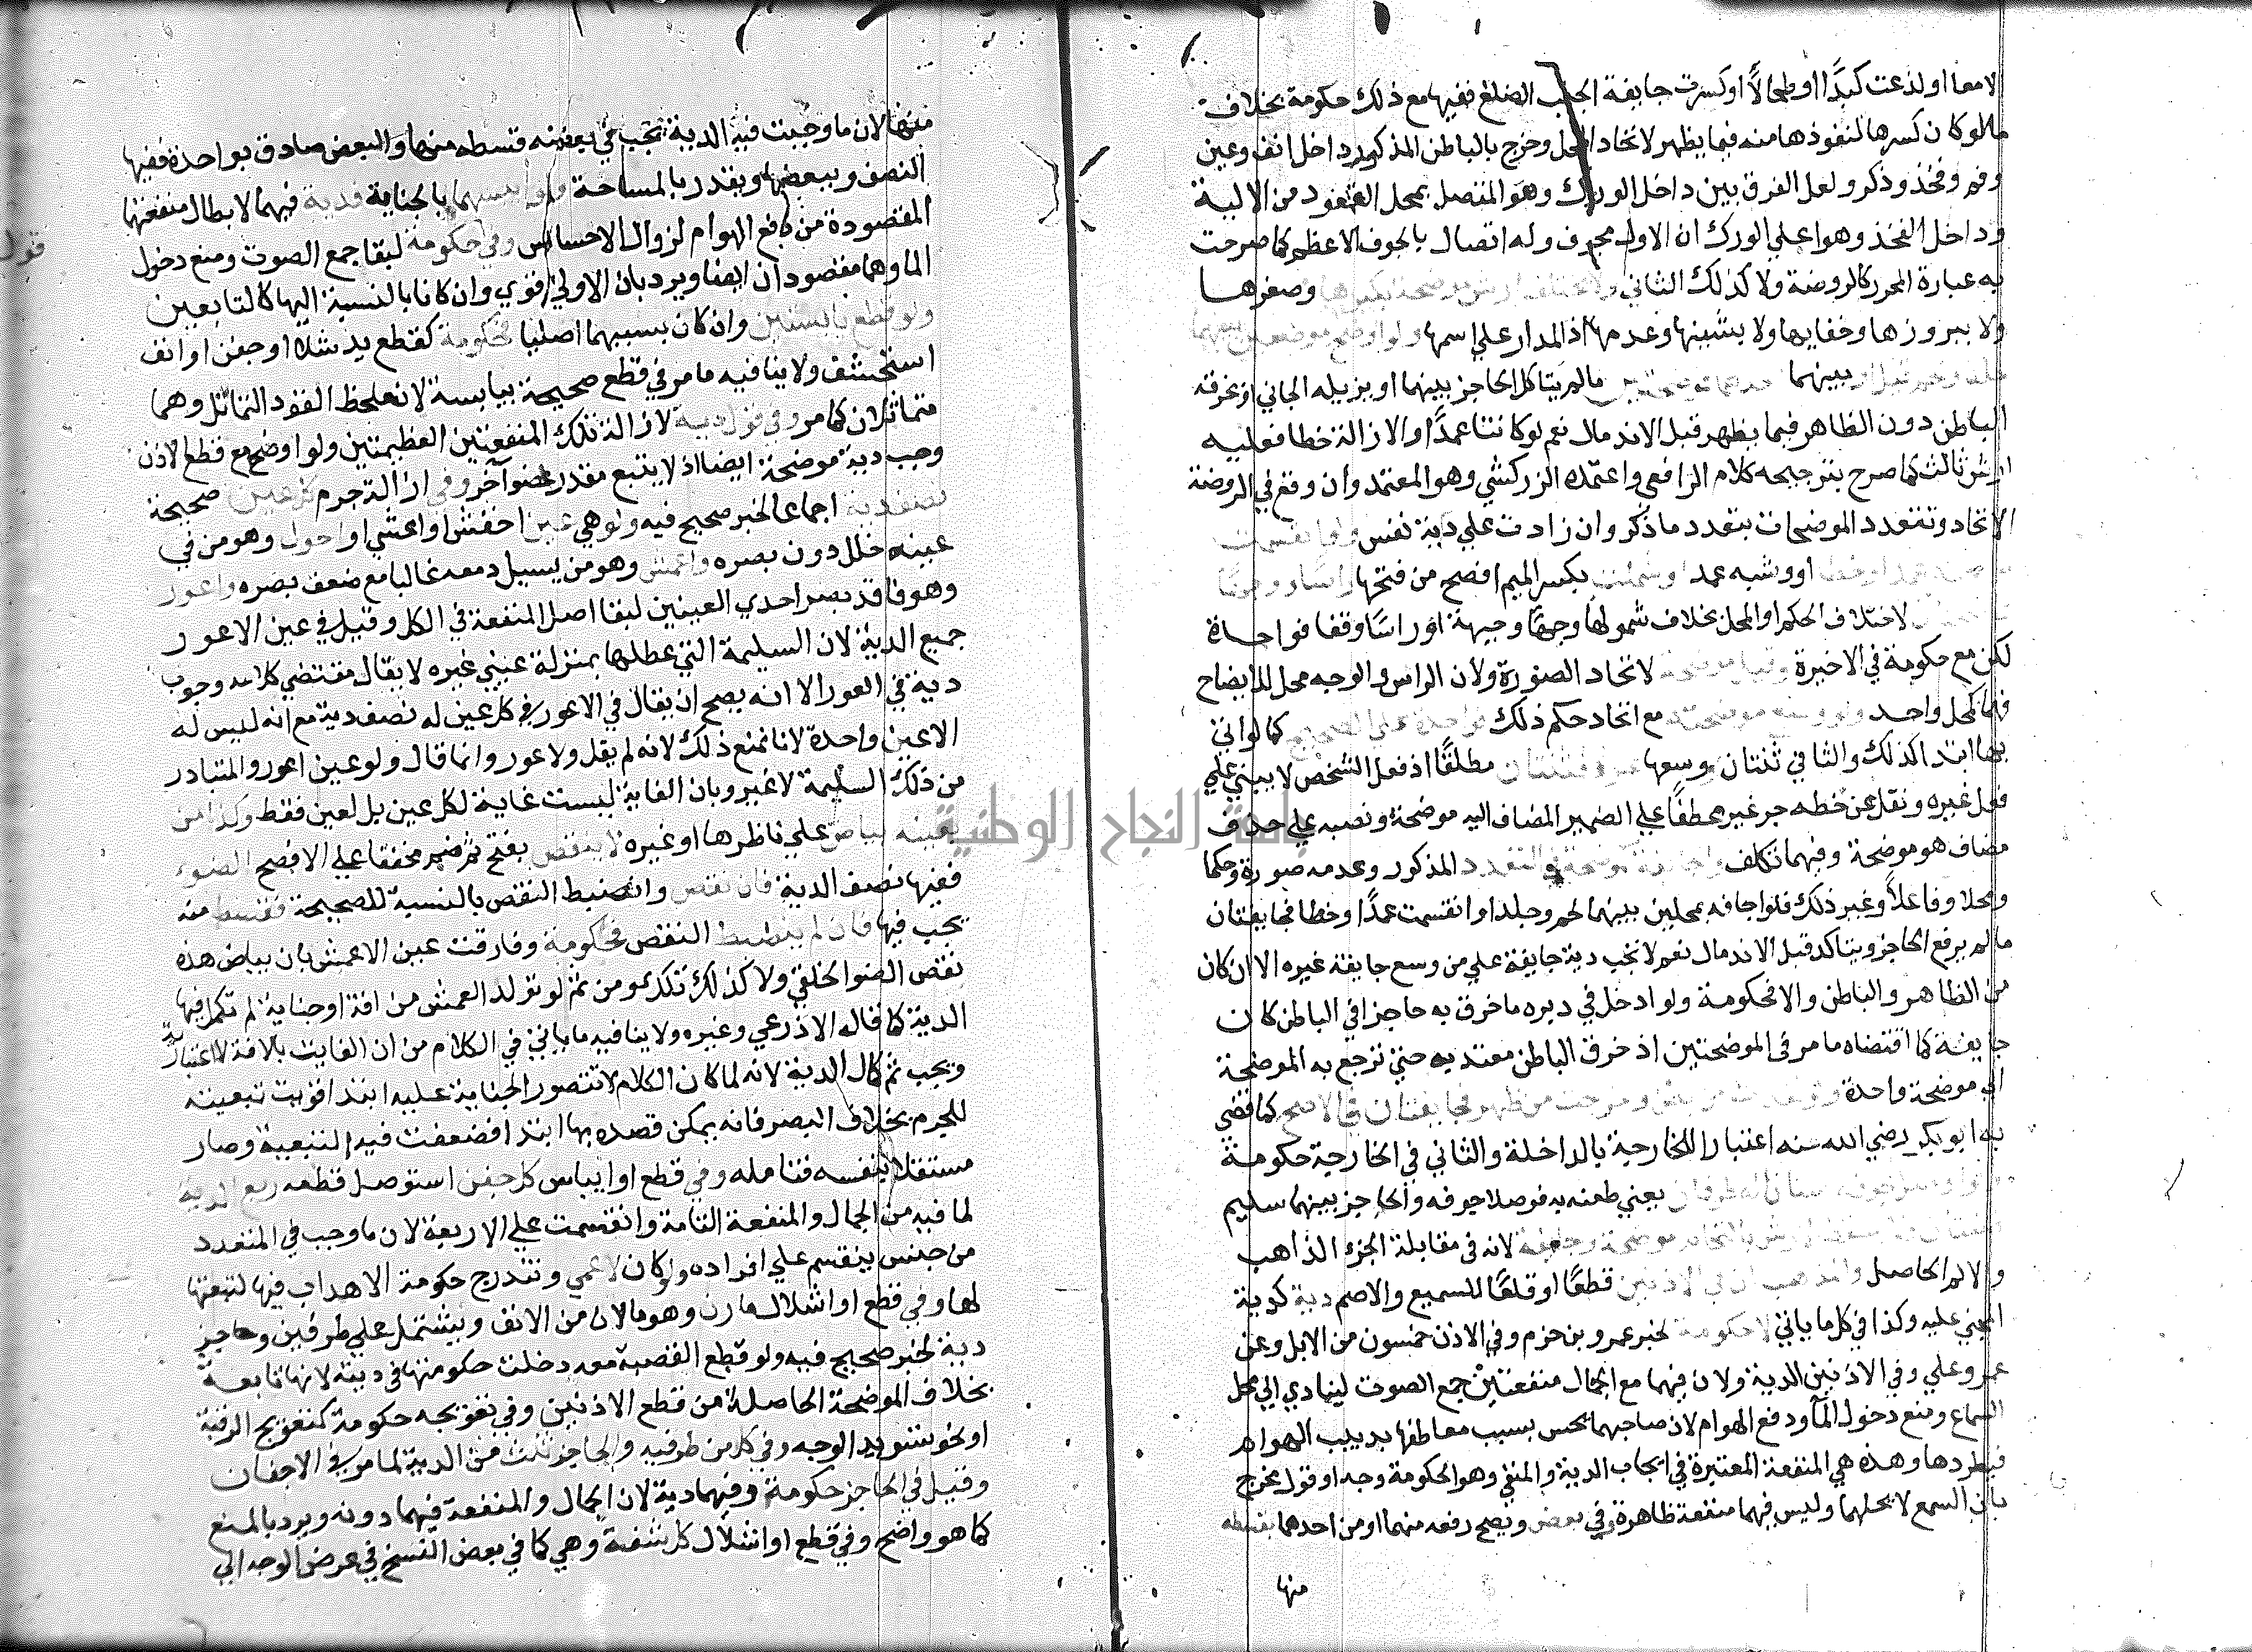 الامعا او لذعت كبدًا او طحالًا او كسرت جايفة الجنب الضلع ففيها مع ذلك حكومة بخلاف
مالو كان كسرها لنفوذها منه فيما يظهر لاتحاد المحل وخرج بالباطن المذكور داخل انف وعين
وفم وفخذ وذكر ولعل الفرق بين داخل الورك وهو المتصل بمحل القعود من الالية
وداخل الفخذ وهو اعلي الورك ان الاول مجوف وله اتصال بالجوف الاعظم كما صرحت
به عبارة المحرر كالروضة ولا كذلك الثاني ولا يختلف ارش موضحة بكبرها وصغرها
ولا ببروزها وخفايها ولا بشينها وعدمها اذ المدار علي اسمها ولو اوضح موضعين بينهما
وبينهما مالم يتاكل الحاجز بينهما او يزيله الجاني او يخرقه
الباطن دون الظاهر فيما يظهر قبل الاندمال نعم لو كانتا عمدًا والازالة خطا فعليه
ارش ثالث كما صرح بترجيحه كلام الرافعي واعتمده الزركشي وهو المعتمد وان وقع في الروضة
الاتحاد وتتعدد الموضحات بتعدد ما ذكر وان زادت علي دية نفس ولو انقسمت
او وشبه عمد او شملت بكسر الميم افصح من فتحها راسا ووجها
لاختلاف الحكم او المحل بخلاف شمولها وجهًا وجبهة او راسًا وقفا فواحدة
لكن مع حكومة في الاخيرة وقيل موضحة لاتحاد الصورة ولان الراس والوجه محل للايضاح
فهما كمحل واحد ولو وسع موضحته مع اتحاد حكم ذلك فواحدة علي الصحيح كما لو اتي
بها ابتدا كذلك والثاني ثنتان وسعها غيره فثنتان مطلقًا اذ فعل الشخص لا يبني علي
فعل غيره ونقل عن خطه جر غير عطفًا علي الضمير المضاف اليه موضحة ونصبه علي حذف
مضاف هو موضحة وفيهما تكلف والجايفة كموضحة في التعدد المذكور وعدمه صورة وحكما
ومحلا وفاعلًا وغير ذلك فلو اجافه بمحلين بينهما لحم وجلد او انقسمت عمدًا وخطا فجايفتان
مالم يرفع الحاجز ويتاكد قبل الاندمال نعم لا تجب دية جايفة علي من وسع جايفة غيره الا ان كان
من الظاهر والباطن والا فحكومة ولو ادخل في دبره ما خرق به حاجزا في الباطن كان
جايفة كما اقتضاه ما مر في الموضحتين اذ خرق الباطن معتد به حتي ترجع به الموضحة
اي موضحة واحدة ولو نفذت من بطن وخرجت من ظهر فجايفتان في الاصح كما قضي
به ابو بكر رضي الله عنه اعتبارا للخارجية بالداخلة والثاني في الخارجية حكومة
سنان له طرفان يعني طعنه به فوصلا جوفه والحاجز بينهما سليم
فثنتان ولا يسقط الارش بالتحام موضحة وجايفة لانه في مقابلة الجزء الذاهب
والالم الحاصل والمذهب ان في الاذنين قطعًا او قلعًا للسميع والاصم دية كدية
المجني عليه وكذا في كل ما ياتي لا حكومة لخبر عمرو بن حزم وفي الاذن خمسون من الابل وعن
عمر وعلي وفي الاذنين الدية ولان فيهما مع الجمال منفعتين جمع الصوت ليتادي الي محل
السماع ومنع دخول المآ ودفع الهوام لان صاحبهما يحس بسبب معاطفها بدبيب الهوام
فيطردها وهذه هي المنفعة المعتبرة في ايجاب الدية والمنفي وهو الحكومة وجه او قول يخرج
بان السمع لا يحلهما وليس فيهما منفعة ظاهرة وفي بعض ويصح رفعه منهما او من احدهما بقسطه
منها
منها لان ما وجبت فيه الدية تجب في بعضه قسطه منها والبعض صادق بواحدة ففيها
النصف وببعضها ويقدر بالمساحة ولو ايبسهما بالجناية فدية فيهما لابطال منفعتها
المقصودة من دفع الهوام لزوال الاحساس وفي حكومة لبقا جمع الصوت ومنع دخول
الما وهما مقصودان ايضا ويرد بان الاولي اقوي وان كانا بالنسبة اليها كالتابعين
ولو قطع يابستين وان كان يبسهما اصليا فحكومة كقطع يد شلا او جفن او انف
استحشف ولا ينافيه ما مر في قطع صحيحة بيابسة لانه ملحظ القود التماثل وهما
متماثلان كما مر وفي قول دية لازالة تلك المنفعتين العظيمتين ولو اوضح مع قطع الاذن
وجب دية موضحة ايضا اذ لا يتبع مقدر عضو آخر وفي ازالة جرم كل عين صحيحة
نصف دية اجماعا لخبر صحيح فيه ولو هي عين اخفش او اعشي او احول وهو من في
عينه خلل دون بصره واعمش وهو من يسيل دمعه غالبا مع ضعف بصره واعور
وهو فاقد بصر احدي العينين لبقا اصل المنفعة في الكل وقيل في عين الاعور
جميع الدية لان السليمة التي عطلها بمنزلة عيني غيره لا يقال مقتضي كلامه وجوب
دية في العورا لا انه يصح ان يقال في الاعور في كل عين له نصف دية مع انه ليس له
الا عين واحدة لانا نمنع ذلك لانه لم يقل ولاعور وانما قال ولو عين اعور والمتبادر
من ذلك السليمة لا غير وبان الغاية ليست غاية لكل عين بل لعين فقط وكذا من
بعينه بياض علي ناظرها او غيره لا ينقص بفتح ثم ضم مخففا علي الافصح الضوء
ففيها نصف الدية فان نقص وانضبط النقص بالنسبة للصحيحة فقسط منه
يجب فيها فان لم ينضبط النقص فحكومة وفارقت عين الاعمش بان بياض هذه
نقص الضو الخلقي ولا كذلك تلك ومن ثم لو تولد العمش من افة او جناية لم تكمل فيها
الدية كما قاله الاذرعي وغيره ولا ينافيه ما ياتي في الكلام من ان الفايت بالافة لا اعتبار به
ويجب ثم كمال الدية لانه لما كان الكلام لا تتصور الجناية عليه ابتدا قويت تبعيته
للجرم بخلاف البصر فانه يمكن قصده بها ابتدا فضعفت فيه التبعية وصار
مستقلا بنفسه فتامله وفي قطع او ايباس كل جفن استوصل قطعه ربع الدية
لما فيه من الجمال والمنفعة التامة وانقسمت علي الاربعة لان ما وجب في المتعدد
من جنس ينقسم علي افراده ولو كان لاعمي وتندرج حكومة الاهداب فيها لتبعيتها
لها وفي قطع او اشلال مارن وهو مالان من الانف ويشتمل علي طرفين وحاجز
دية لخبر صحيح فيه ولو قطع القصبة معه دخلت حكومتها في ديته لانها تابعة
بخلاف الموضحة الحاصلة من قطع الاذنين وفي تعويجه حكومة كتعويج الرقبة
او نحو تسويد الوجه وفي كل من طرفيه والحاجز ثلث من الدية لما مر في الاجفان
وقيل في الحاجز حكومة وفيهما دية لان الجمال والمنفعة فيهما دونه ويرد بالمنع
كما هو واضح وفي قطع او اشلال كل شفة وهي كما في بعض النسخ في عرض الوجه الي
جامعة النجاح الوطنية